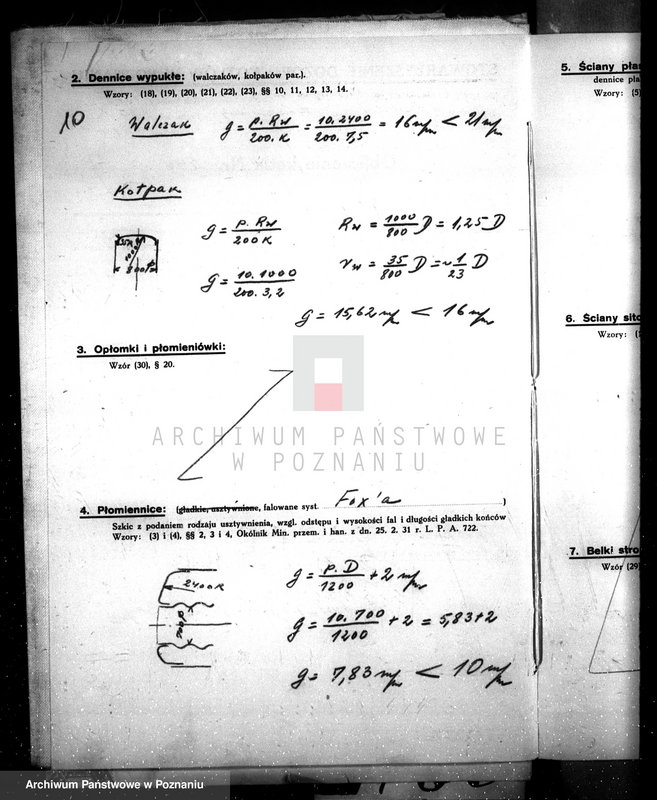 2. Dennice wypukłe: (walczaków, kołpaków par.).
Wzory: (18), (19), (20), (21), (22), (23), §§ 10, 11, 12, 13, 14.
10 Walczak g = p. Rw / 200. K = 10. 2400 / 200. 7,5 = 16 mm < 21 mm
Kołpak
g = p. Rw / 200 K
Rw = 1000 / 800 D = 1,25 D
1000
800
g = 10. 1000 / 200. 3,2
rw = 35 / 800 D = ~ 1 / 23 D
g = 15,62 mm < 16 mm
3. Opłomki i płomieniówki:
Wzór (30), § 20.
ARCHIWUM PAŃSTWOWE
W POZNANIU
4. Płomiennice: (gładkie, usztywnione, falowane syst. Fox'a )
Szkic z podaniem rodzaju usztywnienia, wzgl. odstępu i wysokości fal i długości gładkich końców
Wzory: (3) i (4), §§ 2, 3 i 4, Okólnik Min. przem. i han. z dn. 25. 2. 31 r. L. P. A. 722.
2400 R
700 ø
g = p. D / 1200 + 2 mm
g = 10. 700 / 1200 + 2 = 5,83 + 2
g = 7,83 mm < 10 mm
5. Ściany
dennice
Wzory: (5)
6. Ściany
Wzory:
7. Belki
Wzór (29)
Archiwum Państwowe w Poznaniu